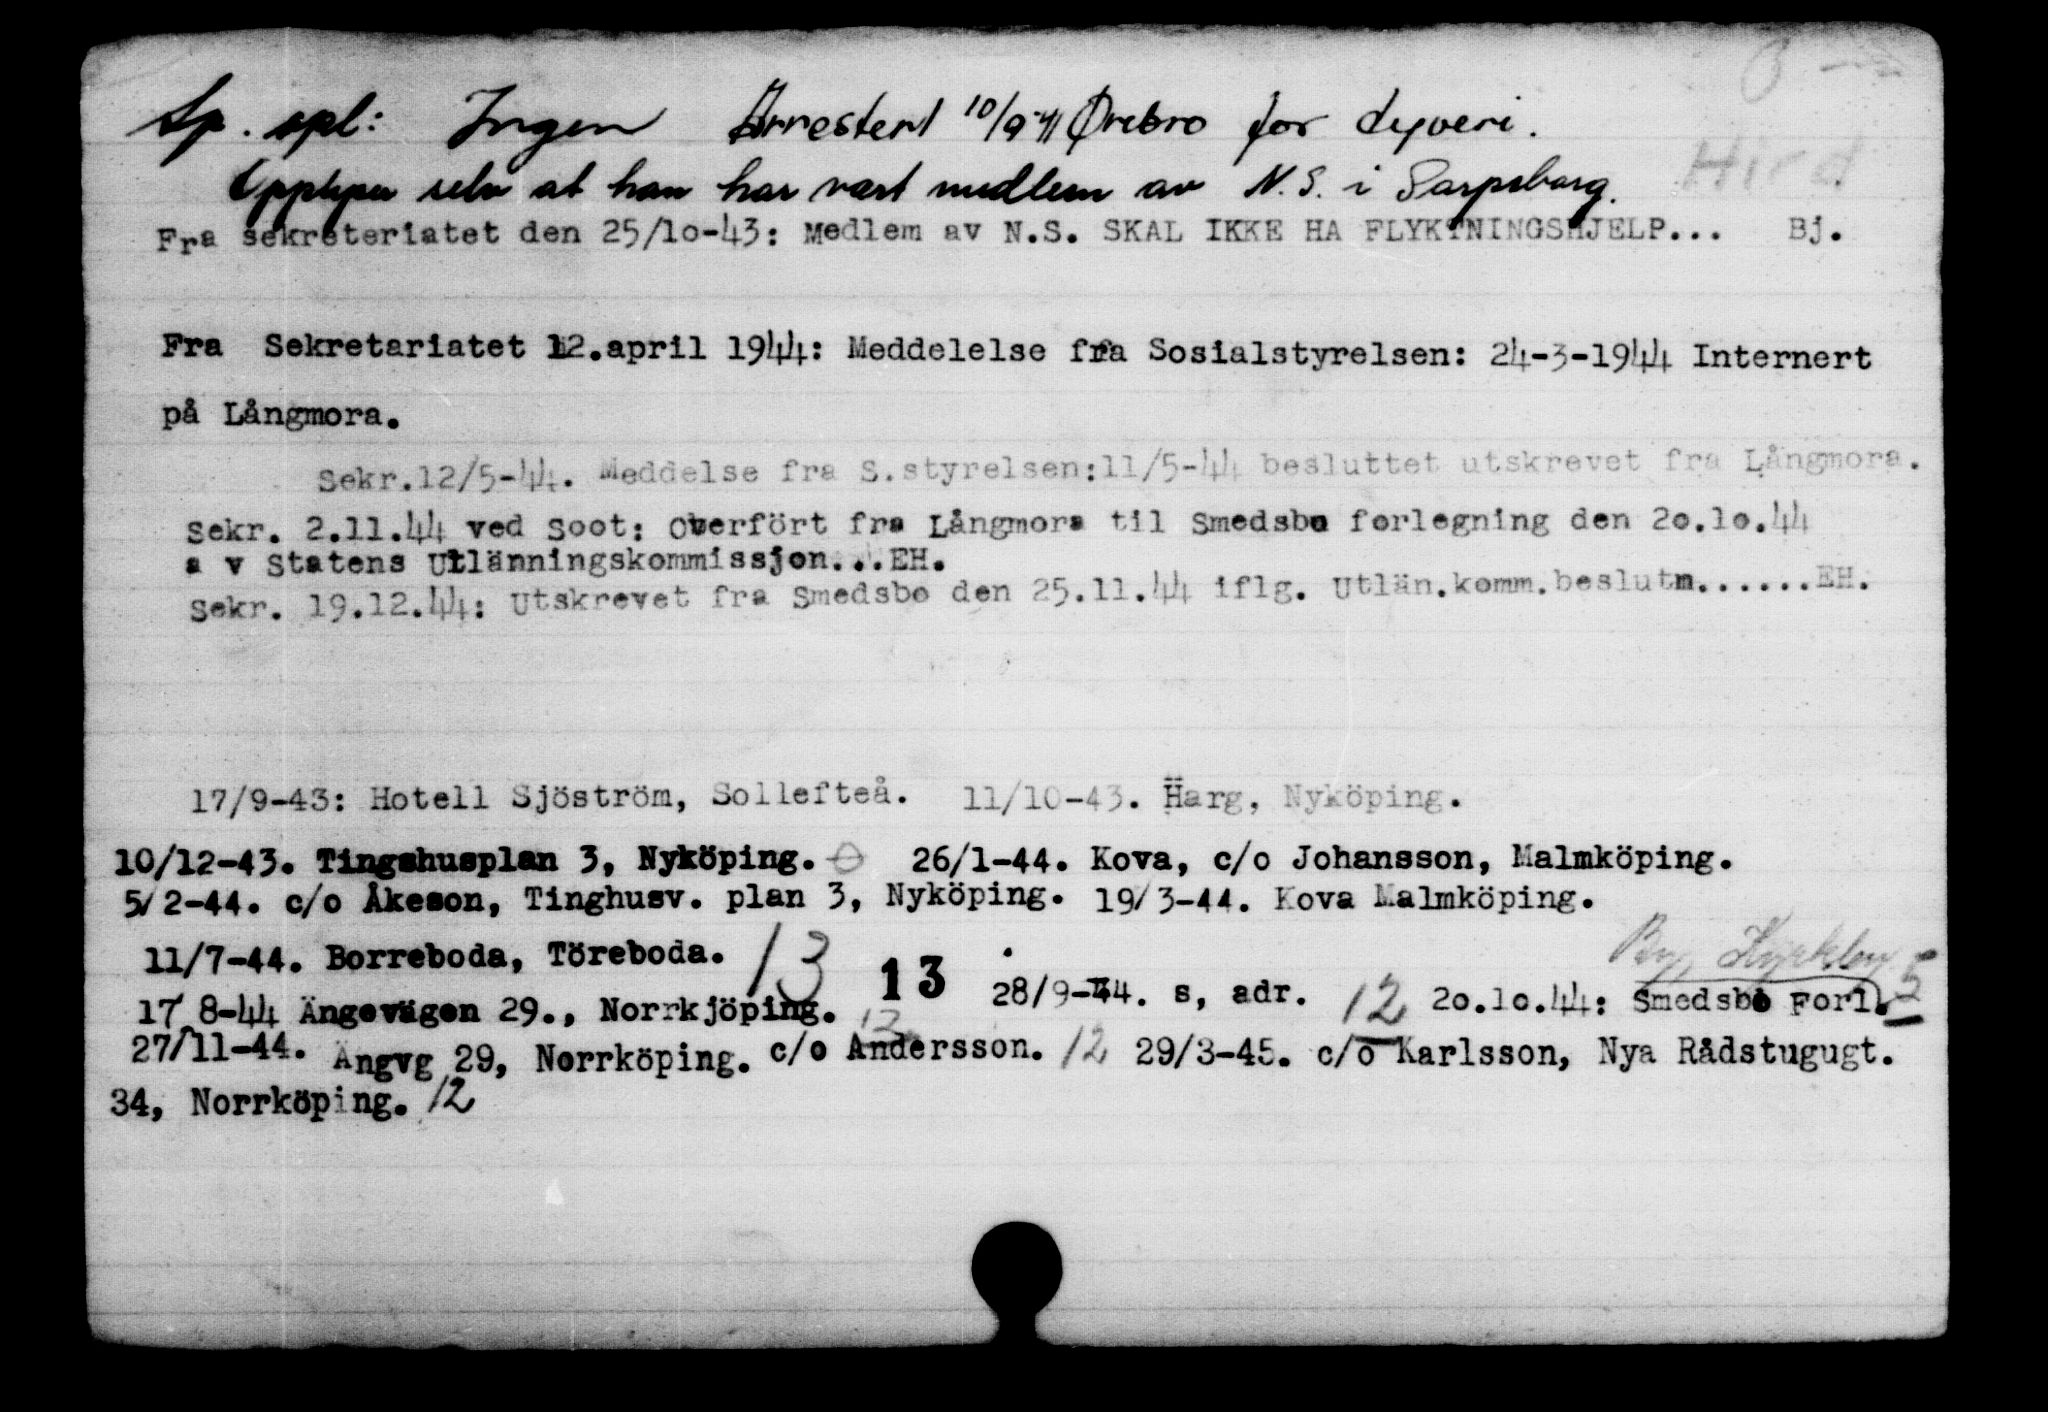 Sp. opl: Ingen Arrestert 10/9-41 Örebro for tyveri.
Opplyser selv at han har vært medlem av N.S. i Sarpsborg.
Hird
Fra sekreteriatet den 25/10-43: Medlem av N.S. SKAL IKKE HA FLYKTNINGSHJELP... Bj.
Fra Sekretariatet 12.april 1944: Meddelelse fra Sosialstyrelsen: 24-3-1944 Internert
på Långmora.
Sekr.12/5-44. Meddelse fra S.styrelsen:11/5-44 besluttet utskrevet fra Långmora.
Sekr. 2.11.44 ved Soot: Overfört fra Långmora til Smedsbo forlegning den 20.10.44
a v Statens Utlänningskommissjon...EH.
Sekr. 19.12.44: Utskrevet fra Smedsbo den 25.11.44 iflg. Utlän.komm.beslutn......EH.
17/9-43: Hotell Sjöström, Sollefteå. 11/10-43. Harg, Nyköping.
10/12-43. Tingshusplan 3, Nyköping. 26/1-44. Kova, c/o Johansson, Malmköping.
5/2-44. c/o Åkeson, Tinghusv. plan 3, Nyköping. 19/3-44. Kova Malmköping.
11/7-44. Borreboda, Töreboda. 13 13 28/9-44. s, adr. 12 20.10.44: Smedsbo Forl. 5
17/8-44 Ängevägen 29., Norrkjöping.
27/11-44. Ängvg 29, Norrköping. c/o Andersson. 12 29/3-45. c/o Karlsson, Nya Rådstugugt.
34, Norrköping. 12